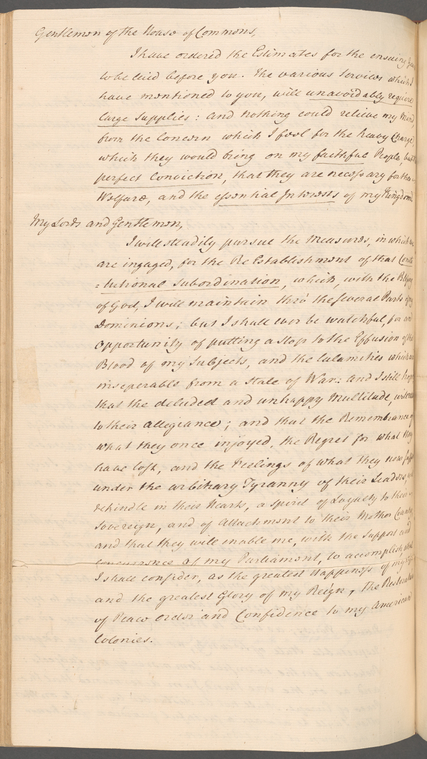 Gentlemen of the House of Commons,
I have ordered the Estimates for the ensuing
to be laid before you. The various Services which I
have mentioned to you, will unavoidably require
large Supplies: and nothing could relieve my Mind
from the Concern which I feel for the heavy Charge
which they would bring on my faithful People, but
perfect Conviction, that they are necessary for the
Welfare, and the essential Interests of my Kingdoms
My Lords and Gentlemen,
I will steadily pursue the Measures, in which we
are ingaged, for the Re Establishment of that
stitutional Subordination, which, with the
of God, I will maintain thro' the several Parts of my
Dominions; but I shall ever be watchful, for an
opportunity of putting a stop to the Effusion of the
Blood of my Subjects, and the Calamities which are
inseperable from a state of War: and I still hope
that the deluded and unhappy Multitude, will
to their allegiance; and that the Remembrance of
what they once injoyed, the Regret for what they
have lost, and the Feelings of what they now
under the arbitrary Tyranny of their Leaders
in their Hearts, a spirit of Loyalty to their
Sovereign, and of Attachment to their Mother Country
and that they will enable me, with the Support and
Concurrence of my Parliament, to accomplish
I shall consider, as the greatest Happiness of my
and the greatest Glory of my Reign, The Restoration
of Peace order and Confidence to my American
Colonies.